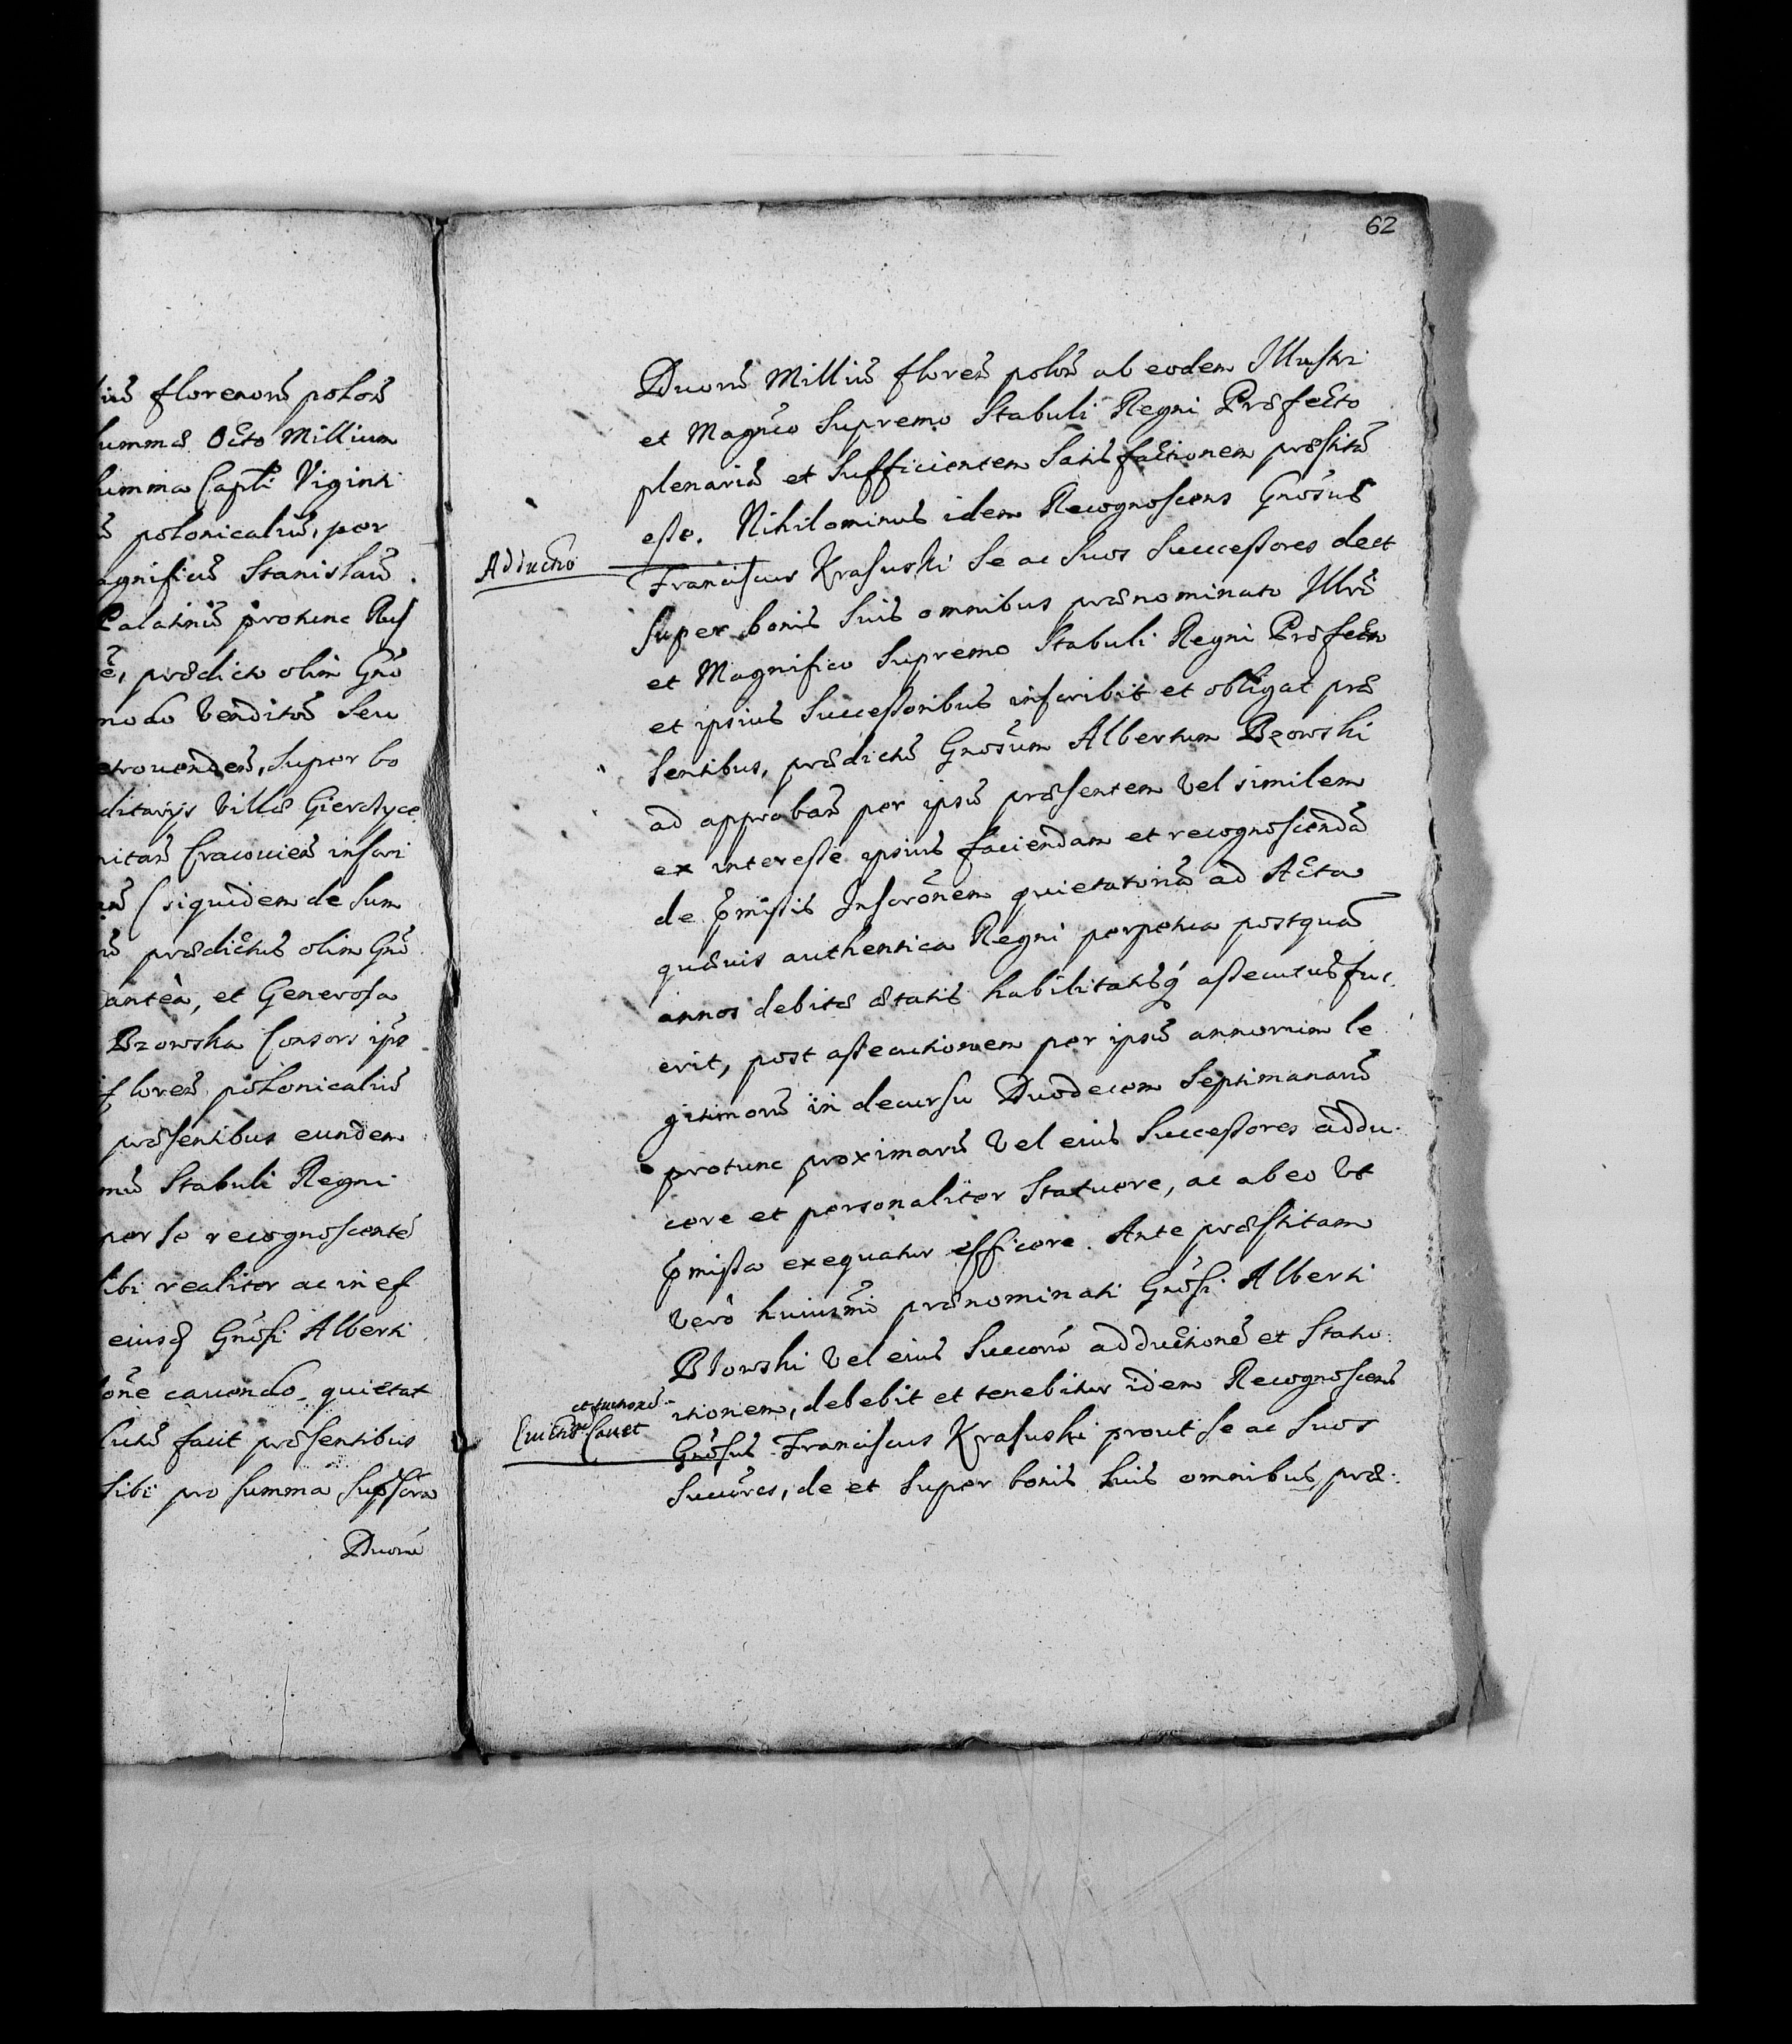 iũ florenorũ polon̄
summæ Octo Millium
summa Captl̃i Viginti
polonicaliũ, per
agnificũ Stanislaũ
Palatinũ protunc Rus
prædicto olim Gn̄o
modo Venditos seu
etrovenden̄, super bo
ditarijs Villæ Gierczyce
nitatũ Cracovien̄ inscri
(siquidem de sum
prædictus olim Gn̄o
anteà, et Generosa
Brzowska Consors ips
floren̄ polonicaliũ
præsentibus eundem
mũ Stabuli Regni
per se recognoscente
sibi realiter ac in ef
eiusd Gn̄osi Alberti
one cavendo quietat
lutũ facit præsentibus
sibi pro summa supscra
Duorũ
62
Duorũ Milliũ floren̄ polon̄ ab eodem Illustri
et Magn̄co Supremo Stabuli Regni Præfecto
plenariã et Sufficientem Satisfactionem præstitã
esse. Nihilominus idem Recognoscens Gn̄osus
Adductio
Franciscus Krasuski Se ac Suos Successores de et
super bonis Suis omnibus prænominato Illrĩ
et Magnifico Supremo Stabuli Regni Præfecto
et ipsius Successoribus inscribit et obligat præ
sentibus, prædictũ Gn̄osum Albertum Bzowski
ad approban̄ per ipsũ præsentem Vel similem
ex interesse ipsius faciendam et recognoscendã
de p̄missis Inscrõnem quietatoriã ad Acta
quævis authentica Regni perpetua postquã
annos debitæ ætatis habilitatisq́ assecutus fu.
erit, post assecutionem per ipsũ annorum le
gitimorũ in decursu Duodecem Septimanarũ
protunc proximarũ Vel eius Successores addu.
cere et personaliter Statuere, ac ab eo Vt
p̄missa exequatur efficere. Ante præstitam
Verò huiusmõi prænominati Gn̄osi Alberti
Bzowski Vel eius Succorũ adductionẽ et Statu.
et tuitionẽ
itionem, debebit et tenebitur idem Recognoscens
Evictionẽ Cavet
Gn̄osus Franciscus Krasuski prout Se ac Suos
Succõres, de et Super bonis Suis omnibus, præ.